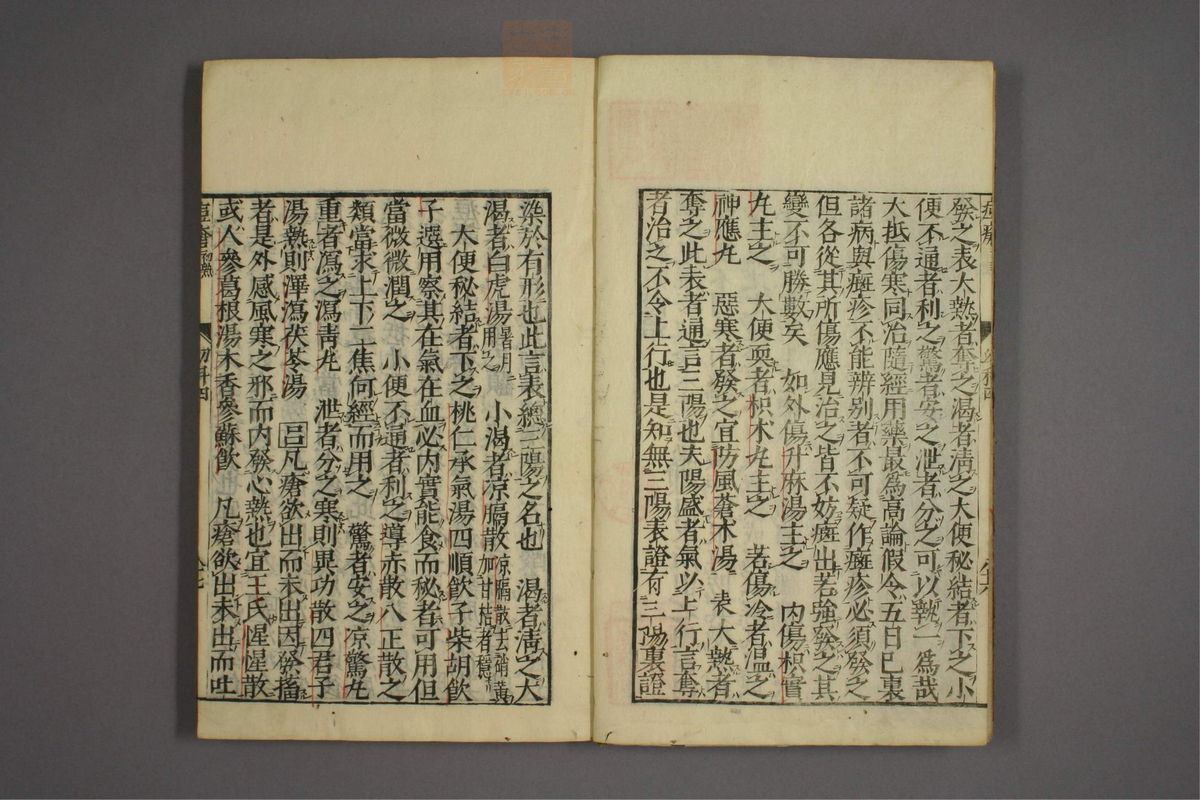 發之表大熱者奪之渴者淸之大便秘結者下之小
便不通者利之驚者安之泄者分之可以執一爲哉
大抵傷寒同治隨經用藥最爲高論假令五日已裏
諸病與癍疹不能辨别者不可疑作癍疹必須發之
但各從其所傷應見治之皆不妨癍出若強發之其
變不可勝數矣 如外傷升麻湯主之 內傷枳實
丸主之 大便耎者枳朮丸主之 若傷冷者溫之
神應丸 惡寒者發之宜防風蒼朮湯 表大熱者
奪之此表者通言三陽也夫陽盛者氣必上行言奪
者治之不令上行也是知無三陽表證有三陽裏證
染於有形也此言表總三陽之名也 渴者淸之大
渴者白虎湯暑月用之 小渴者涼膈散涼膈散去硝黃加甘桔者穩
大便秘結者下之桃仁承氣湯四順飮子柴胡飮
子選用察其在氣在血必内實能食而秘者可用但
當微微潤之 小便不通者利之導赤散八正散之
類當求上下二焦何經而用之 驚者安之凉驚丸
重者瀉之瀉靑丸 泄者分之寒則異功散四君子
湯熱則澤瀉茯苓湯 呂凡瘡欲出而未出因發搐
者是外感風寒之邪而内發心熱也宜王氏惺惺散
或人參葛根湯木香參蘇飮 凡瘡欲出未出而吐